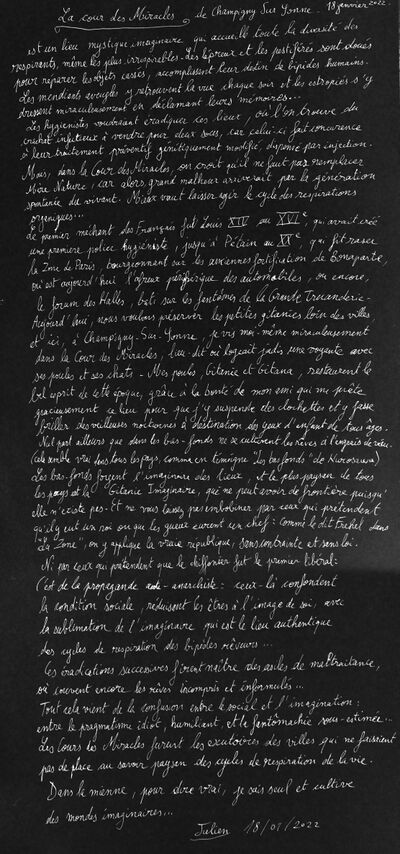 La cour des Miracles, de Champigny Sur Yonne. 18 janvier 2022.
est un lieu mystique imaginaire qui accueille toute la diversité des
respirants, même les plus irrespirables. Les lépreux et les pestiférés sont doués
pour réparer les objets cassés, accomplissent leur destin de bipèdes humains.
Les mendiants aveugles y retrouvent la vue chaque soir et les estropiés s'y
dressent miraculeusement en déclamant leurs mémoires...
Les hygiénistes voudraient éradiquer ces lieux, où l'on trouve du
crachat infectieux à vendre pour deux sous, car celui-ci fait concurrence
à leur traitement préventif génétiquement modifié, disponible par injection.
Mais, dans la Cour des Miracles, on croit qu'il ne faut pas remplacer
Mère Nature, car alors grand malheur arriverait par la génération
spontanée du vivant. Mieux vaut laisser agir le cycle des respirations
organiques...
Le premier méchant des Français fut Louis XIV au XVIIe, qui aurait créé
une première police hygiéniste, jusqu'à Pétain au XXe, qui fit raser
la Zone de Paris, bourgeonnant sur les anciennes fortification de Bonaparte,
qui est aujourd'hui l'affreux périférique des automobiles, ou encore,
le forum des Halles, bâti sur les fantômes de la Grande Truanderie.
Aujourd'hui, nous voulons préserver les petites gitanies loin des villes
et ici, à Champigny-Sur-Yonne, je vis moi-même miraculeusement
dans la Cour des Miracles, lieu-dit où logeait jadis une voyante avec
ses poules et ses chats. Mes poules, bitenie et bitana, restaurent le
bel esprit de cette époque, grâce à la bonté de mon ami qui me prête
gracieusement ce lieu pour que j'y suspende des clochettes et y fasse
briller des veilleuses nocturnes à destination des yeux d'enfant de tous âges.
Nul part ailleurs que dans les bas-fonds ne se cultivent les rêves à l'engrais de rien.
(cela semble vrai dans tous les pays, comme en témoigne "les bas fonds" de Kurosawa)
Les bas-fonds forgent l'imaginaire des lieux, et le plus paysan de tous
les pays est la Gitanie Imaginaire, qui ne peut avoir de frontière puisqu'
elle n'existe pas. Et ne vous laissez pas embobiner par ceux qui prétendent
qu'il y eut un roi ou que les gueux eurent un chef: comme le dit Fréhel dans
"La Zone", on y applique la vraie république, sans contrainte et sans loi.
Ni par ceux qui prétendent que le chiffonier fut le premier libéral:
C'est de la propagande anarchiste: ceux-là confondent
la condition sociale, réduisent les êtres à l'image de soi, avec
la sublimation de l'imaginaire qui est le lieu authentique
des cycles de respiration des bipèdes rêveurs...
Ces éradications successives firent naître des asiles de maltraitance,
où couvent encore les rêves incompris et informulés...
Tout cela vient de la confusion entre le social et l'imagination:
entre le pragmatisme idiot, humiliant, et la fantômachie sous-estimée...
Les Cours des Miracles furent les exutoires des villes qui ne faisaient
pas de place au savoir paysan des cycles de respiration de la vie.
Dans la mienne, pour dire vrai, je suis seul et cultive
des mondes imaginaires...
Julien 18/01/2022